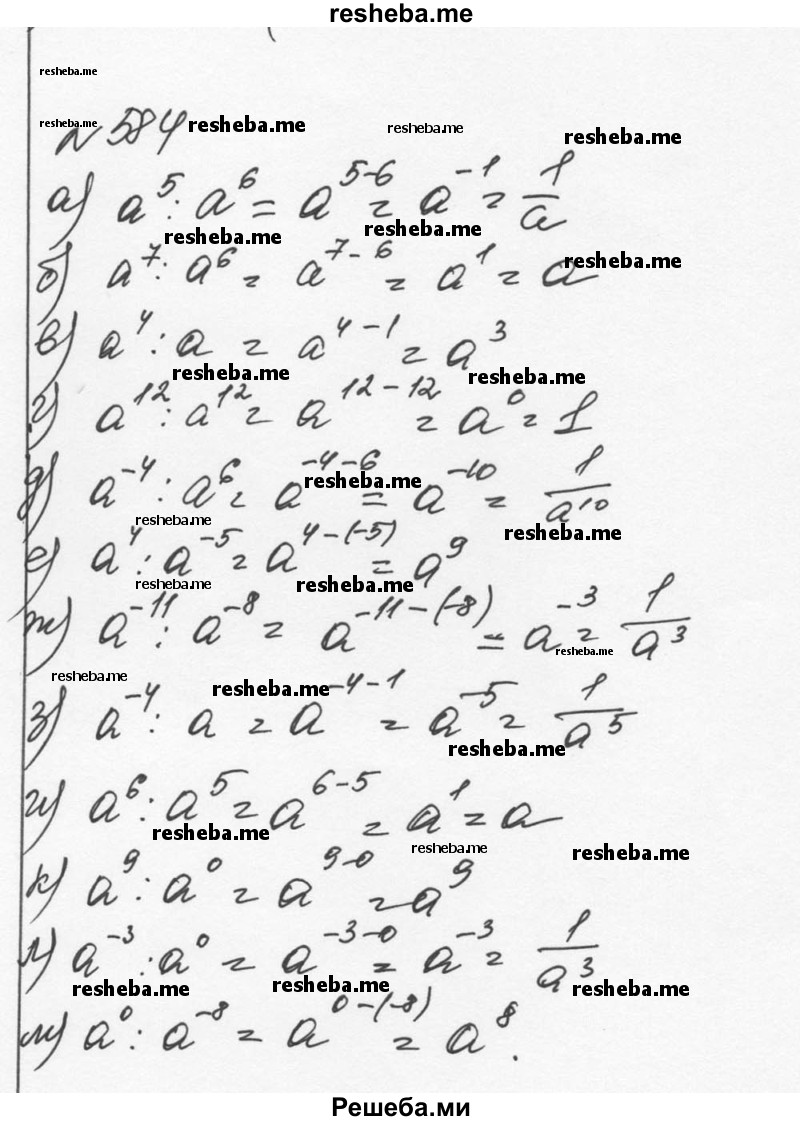 resheba.me
resheba.me
resheba.me № 584 resheba.me resheba.me resheba.me
а) a⁵ : a⁶ = a⁵⁻⁶ = a⁻¹ = 1/a
resheba.me resheba.me
б) a⁷ : a⁶ = a⁷⁻⁶ = a¹ = a resheba.me
в) a⁴ : a = a⁴⁻¹ = a³
resheba.me resheba.me
г) a¹² : a¹² = a¹²⁻¹² = a⁰ = 1
д) a⁻⁴ : a⁶ = a⁻⁴⁻⁶ = a⁻¹⁰ = 1/a¹⁰
resheba.me
resheba.me resheba.me
е) a⁴ : a⁻⁵ = a⁴⁻⁽⁻⁵⁾ = a⁹
resheba.me resheba.me
ж) a⁻¹¹ : a⁻⁸ = a⁻¹¹⁻⁽⁻⁸⁾ = a⁻³ = 1/a³
resheba.me
resheba.me resheba.me
з) a⁻⁴ : a = a⁻⁴⁻¹ = a⁻⁵ = 1/a⁵
resheba.me
и) a⁶ : a⁵ = a⁶⁻⁵ = a¹ = a
resheba.me resheba.me resheba.me
к) a⁹ : a⁰ = a⁹⁻⁰ = a⁹
л) a⁻³ : a⁰ = a⁻³⁻⁰ = a⁻³ = 1/a³
resheba.me resheba.me resheba.me
м) a⁰ : a⁻⁸ = a⁰⁻⁽⁻⁸⁾ = a⁸.
Решеба.ми